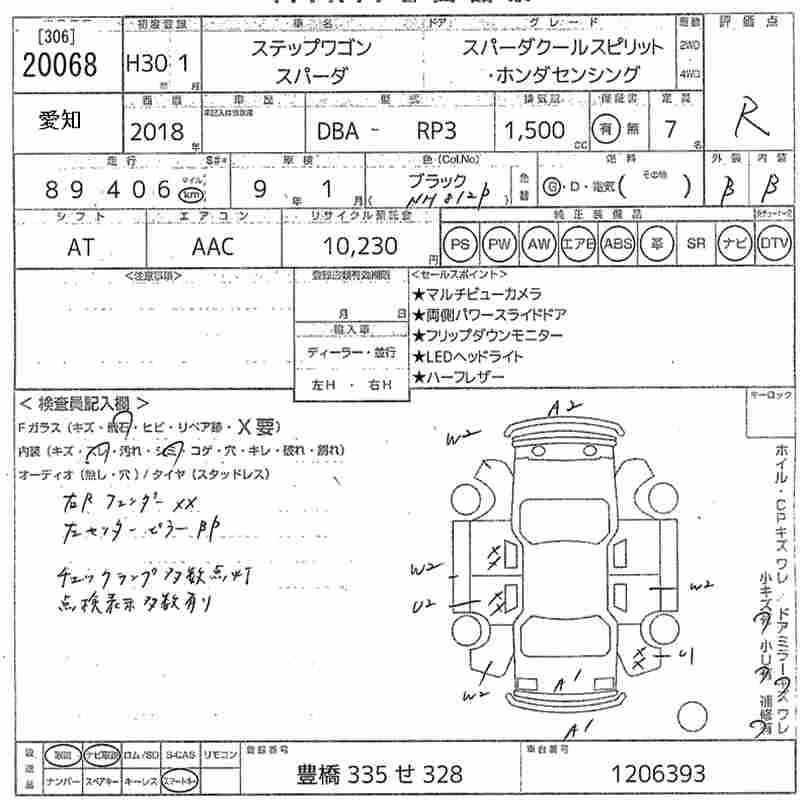 [306]
20068
初度登録
H30 1
年 月
車名 ドア グレード
ステップワゴン
スパーダ
スパーダクールスピリット
・ホンダセンシング
駆動
2WD
4WD
評価点
R
愛知
西暦
2018年
車歴
型式
DBA - RP3
排気量
1,500 CC
保証書
有 無
定員
7名
走行
89406 マイル km
車検
9年 1月
色(Col.No)
ブラック
(NH 812P)
色替
燃料
G・D・電気( その他 )
外装 内装
B B
シフト
AT
エアコン
AAC
リサイクル預託金
10,230円
純正装備品
PS PW AW エアB ABS 革 SR ナビ DTV
<注意事項>
登録書類有効期限
月 日
輸入車
ディーラー・並行
左H ・ 右H
<セールスポイント>
★マルチビューカメラ
★両側パワースライドドア
★フリップダウンモニター
★LEDヘッドライト
★ハーフレザー
キーロック
< 検査員記入欄 >
Fガラス (キズ・飛石・ヒビ・リペア跡・X要)
内装 (キズ・スレ・汚れ・シミ・コゲ・穴・キレ・破れ・割れ)
オーディオ (無し・穴) / タイヤ (スタッドレス)
右Rフェンダー XX
左センターピラー BP
チェックランプ多数点灯
点検表示多数有り
A2
W2
W2
U2
W2
W2
U1
A1
A1
XX
XX
XX
ホイル・CPキズ ワレ / ドアミラーキズ ワレ
小キズ有 小U有 補修有
後送品
取説 ナビ取説 ロム/SD S-CAS リモコン
ナンバー スペアキー キーレス スマートキー
登録番号
豊橋 335 せ 328
車台番号
1206393